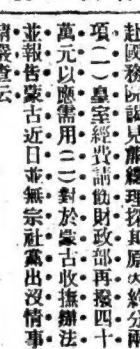 赴國務院謁見熊總理接其原因約分兩
項(一)皇室經費請飭財政部再撥四十
萬元以應需用(二)對於蒙古收撫辦法
並報告蒙古近日並無宗社黨出沒情事
請嚴查云